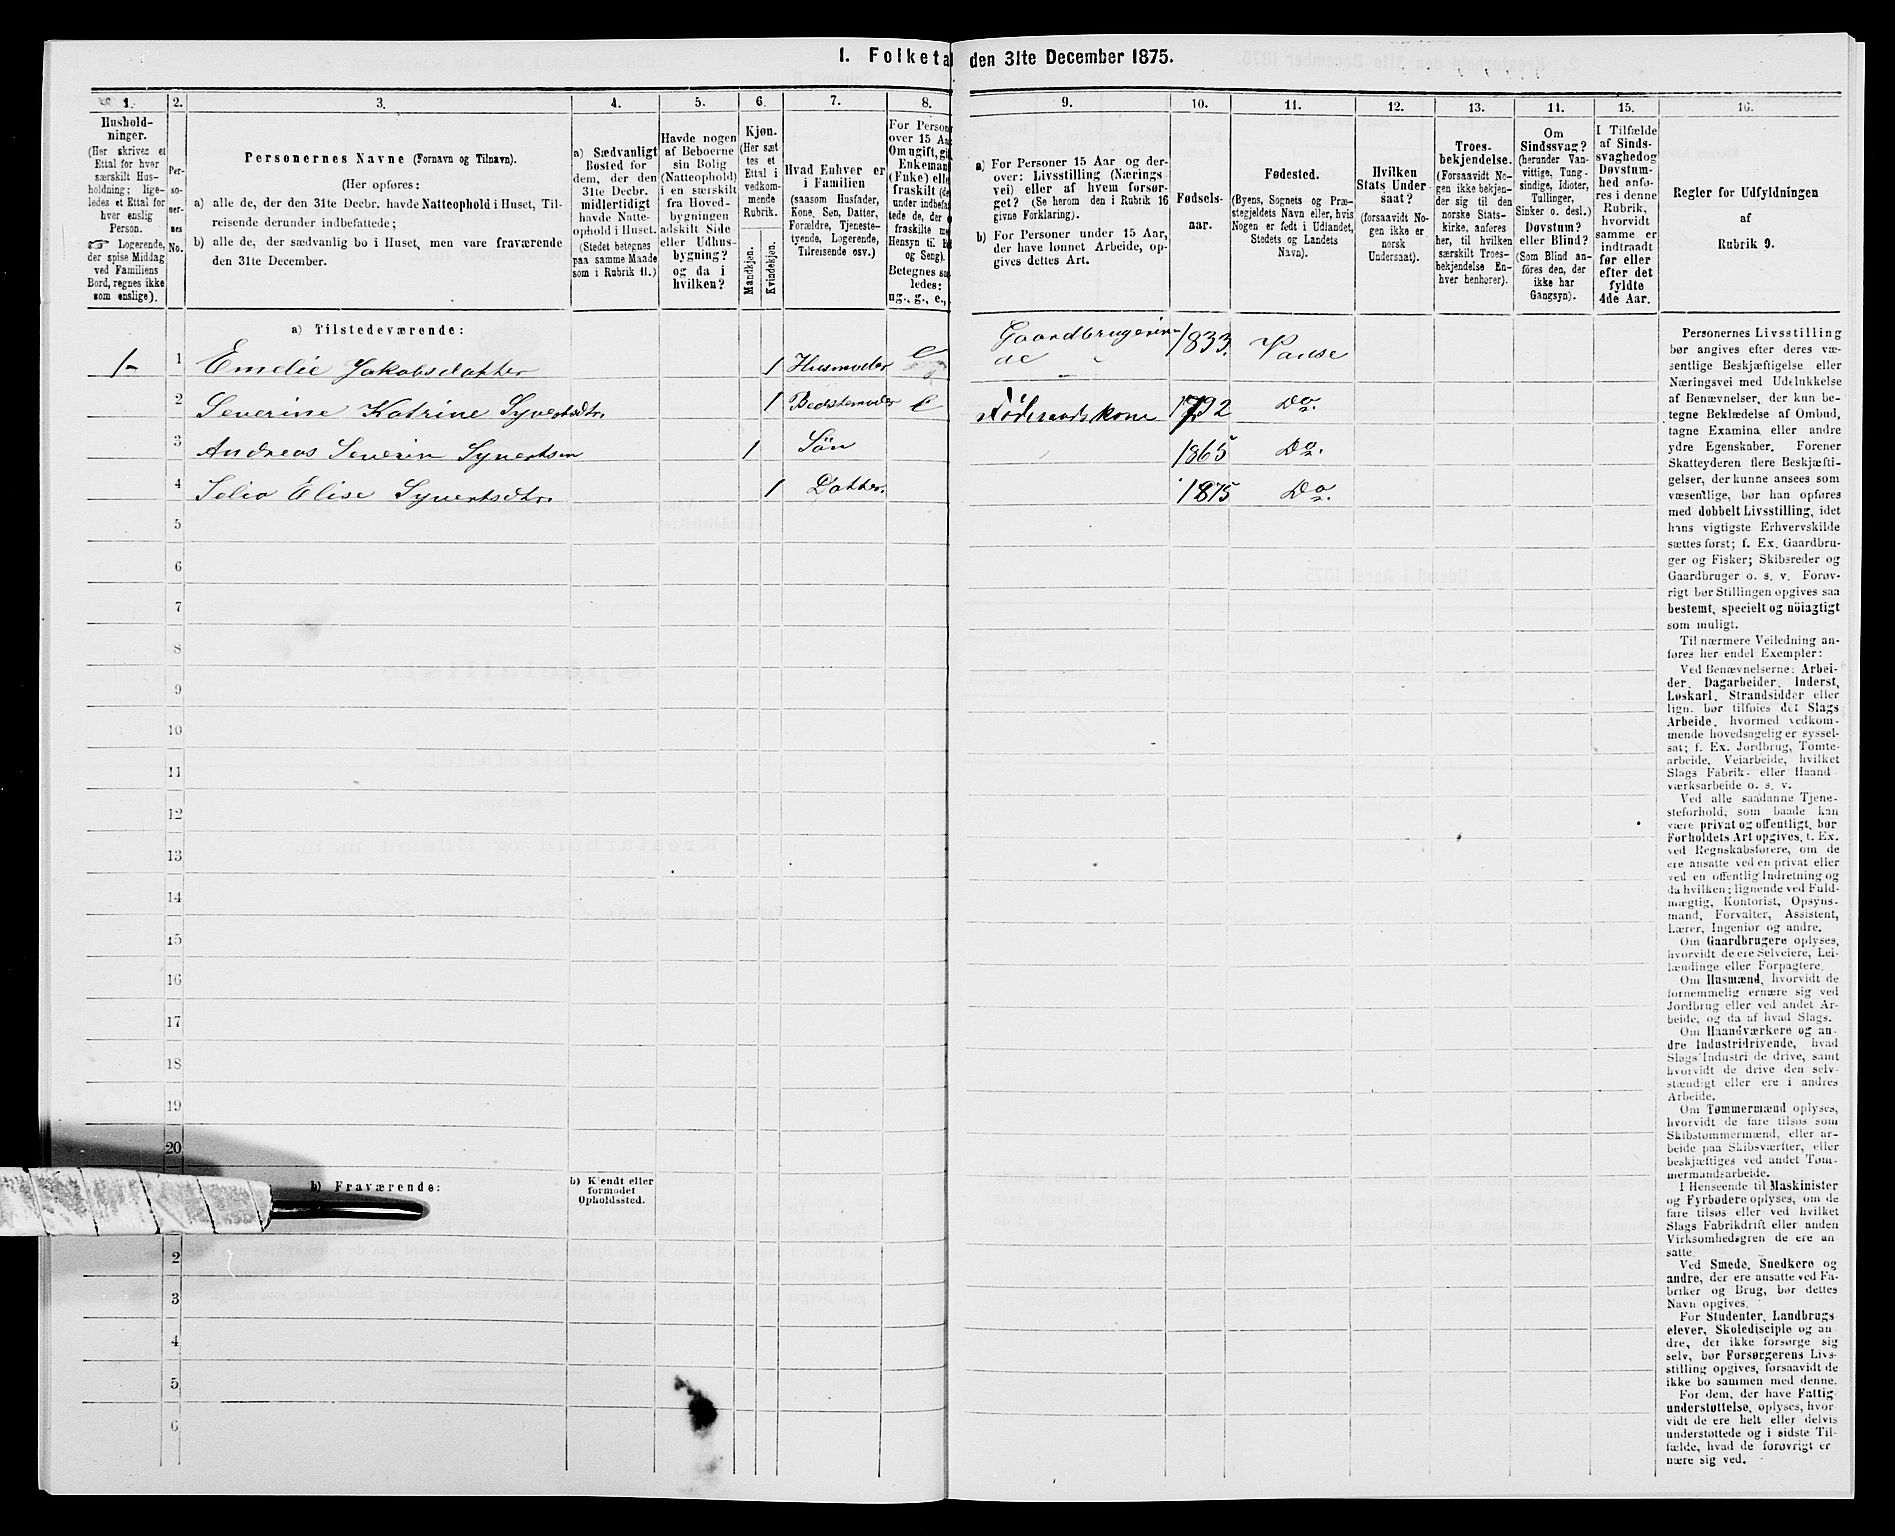 1. Folketal den 31te December 1875.
1. 2. 3. 4. 5. 6. 7. 8. 9. 10. 11. 12. 13. 11. 15. 16.
Hushold-
ninger.
(Her skrives et
Ettal for hver
særskilt Hus-
holdning; lige-
ledes et Ettal for
hver enslig
Person.
☞ Logerende,
der spise Middag
ved Familiens
Bord, regnes ikke
som enslige).
Per-
so-
ner-
nes
No.
Personernes Navne (Fornavn og Tilnavn).
(Her opføres:
a) alle de, der den 31te Decbr. havde Natteophold i Huset, Til-
reisende derunder indbefattede;
b) alle de, der sædvanlig bo i Huset, men vare fraværende
den 31te December.
a) Sædvanligt
Bosted for
dem, der den
31te Decbr.
midlertidigt
havde Natte-
ophold i Huset.
(Stedet betegnes
paa samme Maade
som i Rubrik 11.)
Havde nogen
af Beboerne
sin Bolig
(Natteophold)
i en særskilt
fra Hoved-
bygningen
adskilt Side
eller Udhus-
bygning?
og da i
hvilken?
Kjøn.
(Her sæt
tes et
Ettal i
vedkom-
mende
Rubrik.
Mandkjøn.
Kvindekjøn.
Hvad Enhver er
i Familien
(saasom Husfader,
Kone, Søn, Datter,
Forældre, Tjeneste-
tyende, Logerende,
Tilreisende osv.)
For Person
over 15 Aar
Om ugift, gi
Enkemand
(Enke) elle
fraskilt (de
under indbefat
tede de, der e
fraskilte m
Hensyn til B
og Seng).
Betegnes sa
ledes:
ug., g., e.,
a) For Personer 15 Aar og der-
over: Livsstilling (Nærings
vei) eller af hvem forsør-
get? (Se herom den i Rubrik 16
givne Forklaring).
b) For Personer under 15 Aar,
der have lønnet Arbeide, op-
gives dettes Art.
Fødsels-
aar.
Fødested.
(Byens, Sognets og Præ-
stegjeldets Navn eller, hvis
Nogen er født i Udlandet,
Stedets og Landets
Navn).
Hvilken
Stats Under-
saat?
(forsaavidt No-
gen ikke er
norsk
Undersaat).
Troes-
bekjendelse.
(Forsaavidt No-
gen ikke bekjen-
der sig til den
norske Stats-
kirke, anføres
her, til hvilken
særskilt Troes-
bekjendelse En-
hver henhører).
Om
Sindssvag?
(herunder Van-
vittige, Tung-
sindige, Idioter,
Tullinger,
Sinker o. desl.)
Døvstum?
eller Blind?
(Som Blind an-
føres den, der
ikke har
Gangsyn).
I Tilfælde
af Sinds-
svaghed og
Døvstum-
hed anfø-
res i denne
Rubrik,
hvorvidt
samme er
indtraadt
før eller
efter det
fyldte
4de Aar.
Regler for Udfyldningen
af
Rubrik 9.
a) Tilstedeværende:
1- 1 Emelie Jakobsdatter 1 Husmoder e Gaardbrugerin-
de 1833. Vanse
2 Severine Katrine Syvertsdtr. 1 Bedstemoder e Føderaadskone 1792 Do.
3 Andreas Severin Syvertsen 1 Søn 1865 Do.
4 Elise Syvertsdtr. 1 Datter. 1875 Do.
5
6
7
8
9
10
11
12
13
14
15
16
17
18
19
20
b) Fraværende:
b) Kjendt eller
formodet
Opholdssted.
2
3
4
5
6
Personernes Livsstilling
bør angives efter deres væ-
sentlige Beskjæftigelse eller
Næringsvei med Udelukkelse
af Benævnelser, der kun be-
tegne Beklædelse af Ombud,
tagne Examina eller andre
ydre Egenskaber. Forener
Skatteyderen flere Beskjæfti-
gelser, der kunne ansees som
væsentlige, bør han opføres
med dobbelt Livsstilling, idet
hans vigtigste Erhvervskilde
sættes først; f. Ex. Gaardbru-
ger og Fisker; Skibsreder og
Gaardbruger o. s. v. Forøv-
rigt bør Stillingen opgives saa
bestemt, specielt og nöiagtigt
som muligt.
Til nærmere Veiledning an-
føres her endel Exempler:
Ved Benævnelserne: Arbei-
der, Dagarbeider, Inderst,
Løskarl, Strandsidder eller
lign. bør tilføies det Slags
Arbeide, hvormed vedkom-
mende hovedsagelig er syssel-
sat; f. Ex. Jordbrug, Tomte-
arbeide, Veiarbeide, hvilket
Slags Fabrik- eller Haand-
værksarbeide o. s. v.
Ved alle saadanne Tjene-
steforhold, som baade kan
være privat og offentligt, bør
Forholdets Art opgives, t. Ex.
ved Regnskabsførere, om de
ere ansatte ved en privat eller
ved en offentlig Indretning og
da hvilken; lignende ved Fuld-
mægtig, Kontorist, Opsyns-
mand, Forvalter, Assistent,
Lærer, Ingeniør og andre.
Om Gaardbrugere oplyses,
hvorvidt de ere Selveiere, Lei-
lændinge eller Forpagtere.
Om Husmænd, hvorvidt de
fornemmelig ernære sig ved
Jordbrug eller ved andet Ar-
beide, og da af hvad Slags.
Om Haandværkere og an-
dre Industridrivende, hvad
Slags Industri de drive, samt
hvorvidt de drive den selv-
stændigt eller ere i andres
Arbeide.
Om Tømmermænd oplyses,
hvorvidt de fare tilsøs som
Skibstømmermænd, eller ar-
beide paa Skibsværfter, eller
beskjæftiges ved andet Tøm-
mermandsarbeide.
I Henseende til Maskinister
og Fyrbødere oplyses, om de
fare tilsøs eller ved hvilket
Slags Fabrikdrift eller anden
Virksomhedsgren de ere an-
satte
Ved Smede, Snedkere og
andre, der ere ansatte ved Fa-
briker og Brug, bør dettes
Navn opgives.
For Studenter, Landbrugs-
elever, Skoledisciple og an-
dre, der ikke forsørge sig
selv, bør Forsørgerens Livs-
stilling opgives, forsaavidt de
ikke bo sammen med denne.
For dem, der have Fattig-
understøttelse, oplyses, hvor-
vidt de ere helt eller delvis
understøttede og i sidste Til-
fælde, hvad de forøvrigt er-
nære sig ved.